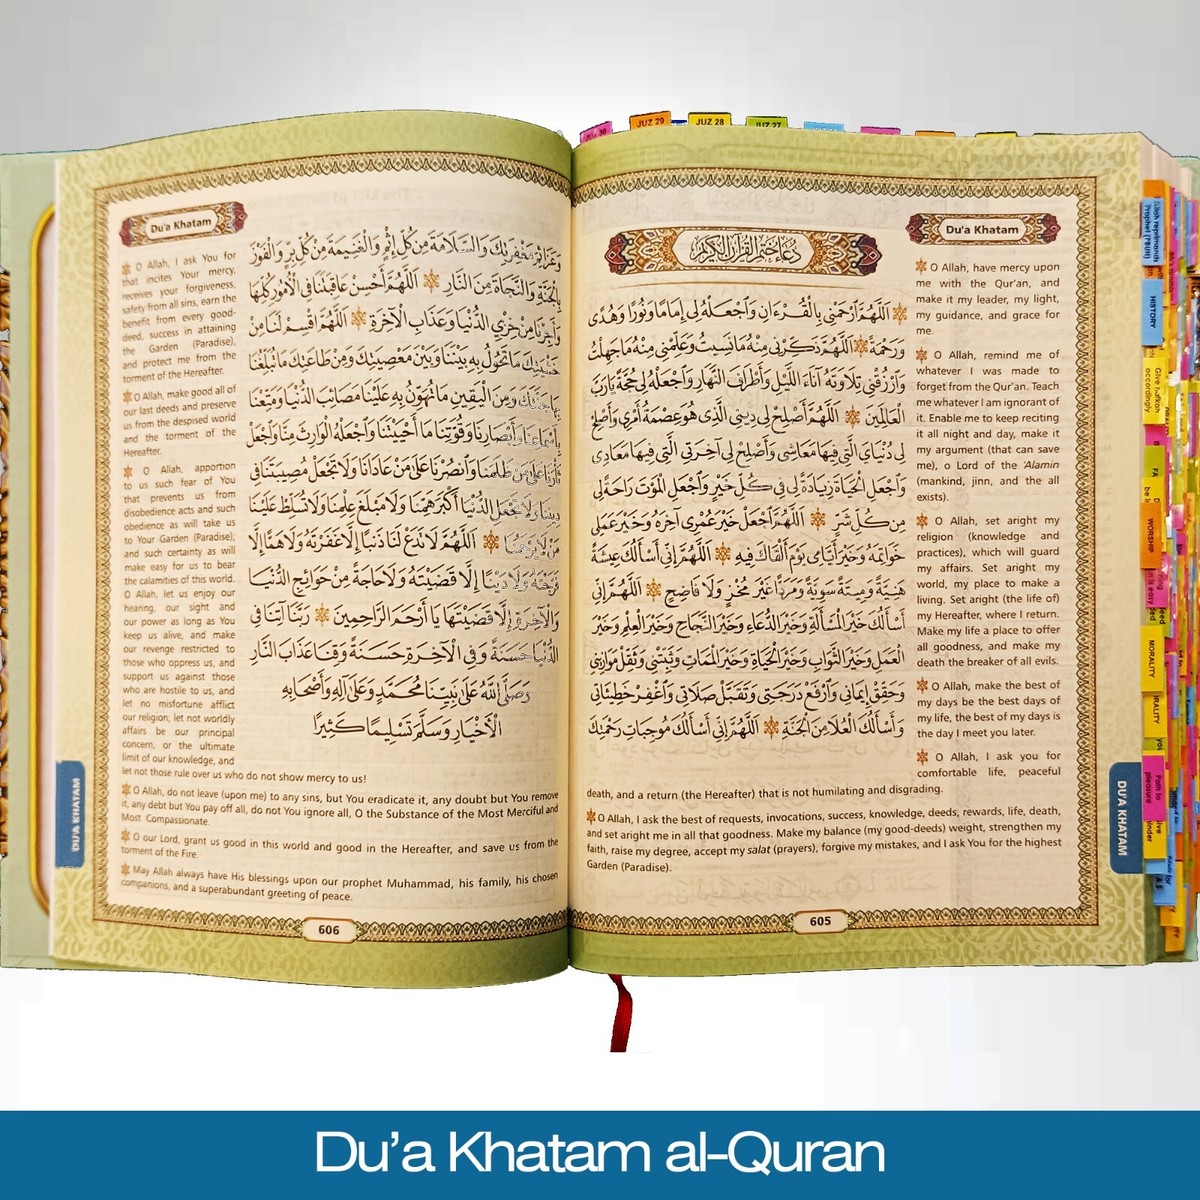 JUZ 29
JUZ 28
JUZ 27
Du'a Khatam
دُعَاءُ خَتْمِ القُرْآنِ الكَرِيْمِ
اَللّٰهُمَّ ارْحَمْنِي بِالْقُرْءَانِ وَاجْعَلْهُ لِي إِمَامًا وَنُورًا وَهُدًى
وَرَحْمَةً اَللّٰهُمَّ ذَكِّرْنِي مِنْهُ مَا نَسِيتُ وَعَلِّمْنِي مِنْهُ مَا جَهِلْتُ
وَارْزُقْنِي تِلَاوَتَهُ آنَاءَ اللَّيْلِ وَأَطْرَافَ النَّهَارِ وَاجْعَلْهُ لِي حُجَّةً يَارَبَّ
الْعَالَمِينَ اَللّٰهُمَّ أَصْلِحْ لِي دِينِي الَّذِي هُوَ عِصْمَةُ أَمْرِي وَأَصْلِحْ
لِي دُنْيَايَ الَّتِي فِيهَا مَعَاشِي وَأَصْلِحْ لِي آخِرَتِي الَّتِي فِيهَا مَعَادِي
وَاجْعَلِ الْحَيَاةَ زِيَادَةً لِي فِي كُلِّ خَيْرٍ وَاجْعَلِ الْمَوْتَ رَاحَةً لِي
مِنْ كُلِّ شَرٍّ اَللّٰهُمَّ اجْعَلْ خَيْرَ عُمْرِي آخِرَهُ وَخَيْرَ عَمَلِي
خَوَاتِمَهُ وَخَيْرَ أَيَّامِي يَوْمَ أَلْقَاكَ فِيهِ اَللّٰهُمَّ إِنِّي أَسْأَلُكَ عِيشَةً
هَنِيَّةً وَمِيتَةً سَوِيَّةً وَمَرَدًّا غَيْرَ مُخْزٍ وَلَا فَاضِحٍ اَللّٰهُمَّ إِنِّي
أَسْأَلُكَ خَيْرَ الْمَسْأَلَةِ وَخَيْرَ الدُّعَاءِ وَخَيْرَ النَّجَاحِ وَخَيْرَ الْعِلْمِ وَخَيْرَ
الْعَمَلِ وَخَيْرَ الثَّوَابِ وَخَيْرَ الْحَيَاةِ وَخَيْرَ الْمَمَاتِ وَثَبِّتْنِي وَثَقِّلْ مَوَازِينِي
وَحَقِّقْ إِيمَانِي وَارْفَعْ دَرَجَتِي وَتَقَبَّلْ صَلَاتِي وَاغْفِرْ خَطِيئَاتِي
وَأَسْأَلُكَ الْعُلَا مِنَ الْجَنَّةِ اَللّٰهُمَّ إِنِّي أَسْأَلُكَ مُوجِبَاتِ رَحْمَتِكَ
O Allah, have mercy upon
me with the Qur'an, and
make it my leader, my light,
my guidance, and grace for
me.
O Allah, remind me of
whatever I was made to
forget from the Qur'an. Teach
me whatever I am ignorant of
it. Enable me to keep reciting
it all night and day, make it
my argument (that can save
me), o Lord of the 'Alamin
(mankind, jinn, and the all
exists).
O Allah, set aright my
religion (knowledge and
practices), which will guard
my affairs. Set aright my
world, my place to make a
living. Set aright (the life of)
my Hereafter, where I return.
Make my life a place to offer
all goodness, and make my
death the breaker of all evils.
O Allah, make the best of
my days be the best days of
my life, the best of my days is
the day I meet you later.
O Allah, I ask you for
comfortable life, peaceful
death, and a return (the Hereafter) that is not humilating and disgrading.
O Allah, I ask the best of requests, invocations, success, knowledge, deeds, rewards, life, death,
and set aright me in all that goodness. Make my balance (my good-deeds) weight, strengthen my
faith, raise my degree, accept my salat (prayers), forgive my mistakes, and I ask You for the highest
Garden (Paradise).
605
DU'A KHATAM
HISTORY
WORSHIP
MORALITY
Path to
pleasure
Du'a Khatam
وَعَزَائِمَ مَغْفِرَتِكَ وَالسَّلَامَةَ مِنْ كُلِّ إِثْمٍ وَالْغَنِيمَةَ مِنْ كُلِّ بِرٍّ وَالْفَوْزَ
بِالْجَنَّةِ وَالنَّجَاةَ مِنَ النَّارِ اَللّٰهُمَّ أَحْسِنْ عَاقِبَتَنَا فِي الْأُمُورِ كُلِّهَا
وَأَجِرْنَا مِنْ خِزْيِ الدُّنْيَا وَعَذَابِ الْآخِرَةِ اَللّٰهُمَّ اقْسِمْ لَنَا مِنْ
خَشْيَتِكَ مَا تَحُولُ بِهِ بَيْنَنَا وَبَيْنَ مَعْصِيَتِكَ وَمِنْ طَاعَتِكَ مَا تُبَلِّغُنَا
بِهَا جَنَّتَكَ وَمِنَ الْيَقِينِ مَا تُهَوِّنُ بِهِ عَلَيْنَا مَصَائِبَ الدُّنْيَا وَمَتِّعْنَا
بِأَسْمَاعِنَا وَأَبْصَارِنَا وَقُوَّتِنَا مَا أَحْيَيْتَنَا وَاجْعَلْهُ الْوَارِثَ مِنَّا وَاجْعَلْ
ثَأْرَنَا عَلَى مَنْ ظَلَمَنَا وَانْصُرْنَا عَلَى مَنْ عَادَانَا وَلَا تَجْعَلْ مُصِيبَتَنَا فِي
دِينِنَا وَلَا تَجْعَلِ الدُّنْيَا أَكْبَرَ هَمِّنَا وَلَا مَبْلَغَ عِلْمِنَا وَلَا تُسَلِّطْ عَلَيْنَا
مَنْ لَا يَرْحَمُنَا اَللّٰهُمَّ لَا تَدَعْ لَنَا ذَنْبًا إِلَّا غَفَرْتَهُ وَلَا هَمًّا إِلَّا
فَرَّجْتَهُ وَلَا دَيْنًا إِلَّا قَضَيْتَهُ وَلَا حَاجَةً مِنْ حَوَائِجِ الدُّنْيَا
وَالْآخِرَةِ إِلَّا قَضَيْتَهَا يَا أَرْحَمَ الرَّاحِمِينَ رَبَّنَا آتِنَا فِي
الدُّنْيَا حَسَنَةً وَفِي الْآخِرَةِ حَسَنَةً وَقِنَا عَذَابَ النَّارِ
وَصَلَّى اللّٰهُ عَلَى نَبِيِّنَا مُحَمَّدٍ وَعَلَى آلِهِ وَأَصْحَابِهِ
الْأَخْيَارِ وَسَلَّمَ تَسْلِيمًا كَثِيرًا
O Allah, I ask You for
that incites Your mercy,
receives your forgiveness,
safety from all sins, earn the
benefit from every good-
deed, success in attaining
the Garden (Paradise),
and protect me from the
torment of the Hereafter.
O Allah, make good all of
our last deeds and preserve
us from the despised world
and the torment of the
Hereafter.
O Allah, apportion
to us such fear of You
that prevents us from
disobedience acts and such
obedience as will take us
to Your Garden (Paradise);
and such certainty as will
make easy for us to bear
the calamities of this world.
O Allah, let us enjoy our
hearing, our sight and
our power as long as You
keep us alive, and make
our revenge restricted to
those who oppress us, and
support us against those
who are hostile to us, and
let no misfortune afflict
our religion; let not worldly
affairs be our principal
concern, or the ultimate
limit of our knowledge, and
let not those rule over us who do not show mercy to us!
O Allah, do not leave (upon me) to any sins, but You eradicate it, any doubt but You remove
it, any debt but You pay off all, do not You ignore all, O the Substance of the Most Merciful and
Most Compassionate.
O our Lord, grant us good in this world and good in the Hereafter, and save us from the
torment of the Fire.
May Allah always have His blessings upon our prophet Muhammad, his family, his chosen
companions, and a superabundant greeting of peace.
606
DU'A KHATAM
Du'a Khatam al-Quran